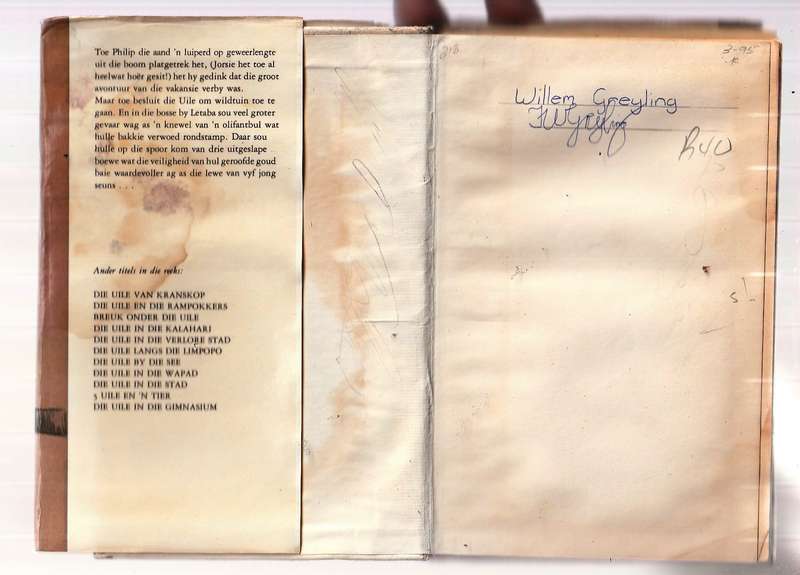 Toe Philip die aand 'n luiperd op geweerlengte
uit die boom platgetrek het, (Jorsie het toe al
heelwat hoër gesit!) het hy gedink dat die groot
avontuur van die vakansie verby was.
Maar toe besluit die Uile om wildtuin toe te
gaan. En in die bosse by Letaba sou veel groter
gevaar wag as 'n knewel van 'n olifantbul wat
hulle bakkie verwoed rondstamp. Daar sou
hulle op die spoor kom van drie uitgeslape
boewe wat die veiligheid van hul geroofde goud
baie waardevoller ag as die lewe van vyf jong
seuns . . .
Ander titels in die reeks:
DIE UILE VAN KRANSKOP
DIE UILE EN DIE RAMPOKKERS
BREUK ONDER DIE UILE
DIE UILE IN DIE KALAHARI
DIE UILE IN DIE VERLORE STAD
DIE UILE LANGS DIE LIMPOPO
DIE UILE BY DIE SEE
DIE UILE IN DIE WAPAD
DIE UILE IN DIE STAD
5 UILE EN 'N TIER
DIE UILE IN DIE GIMNASIUM
3-95
Willem Greyling
R40